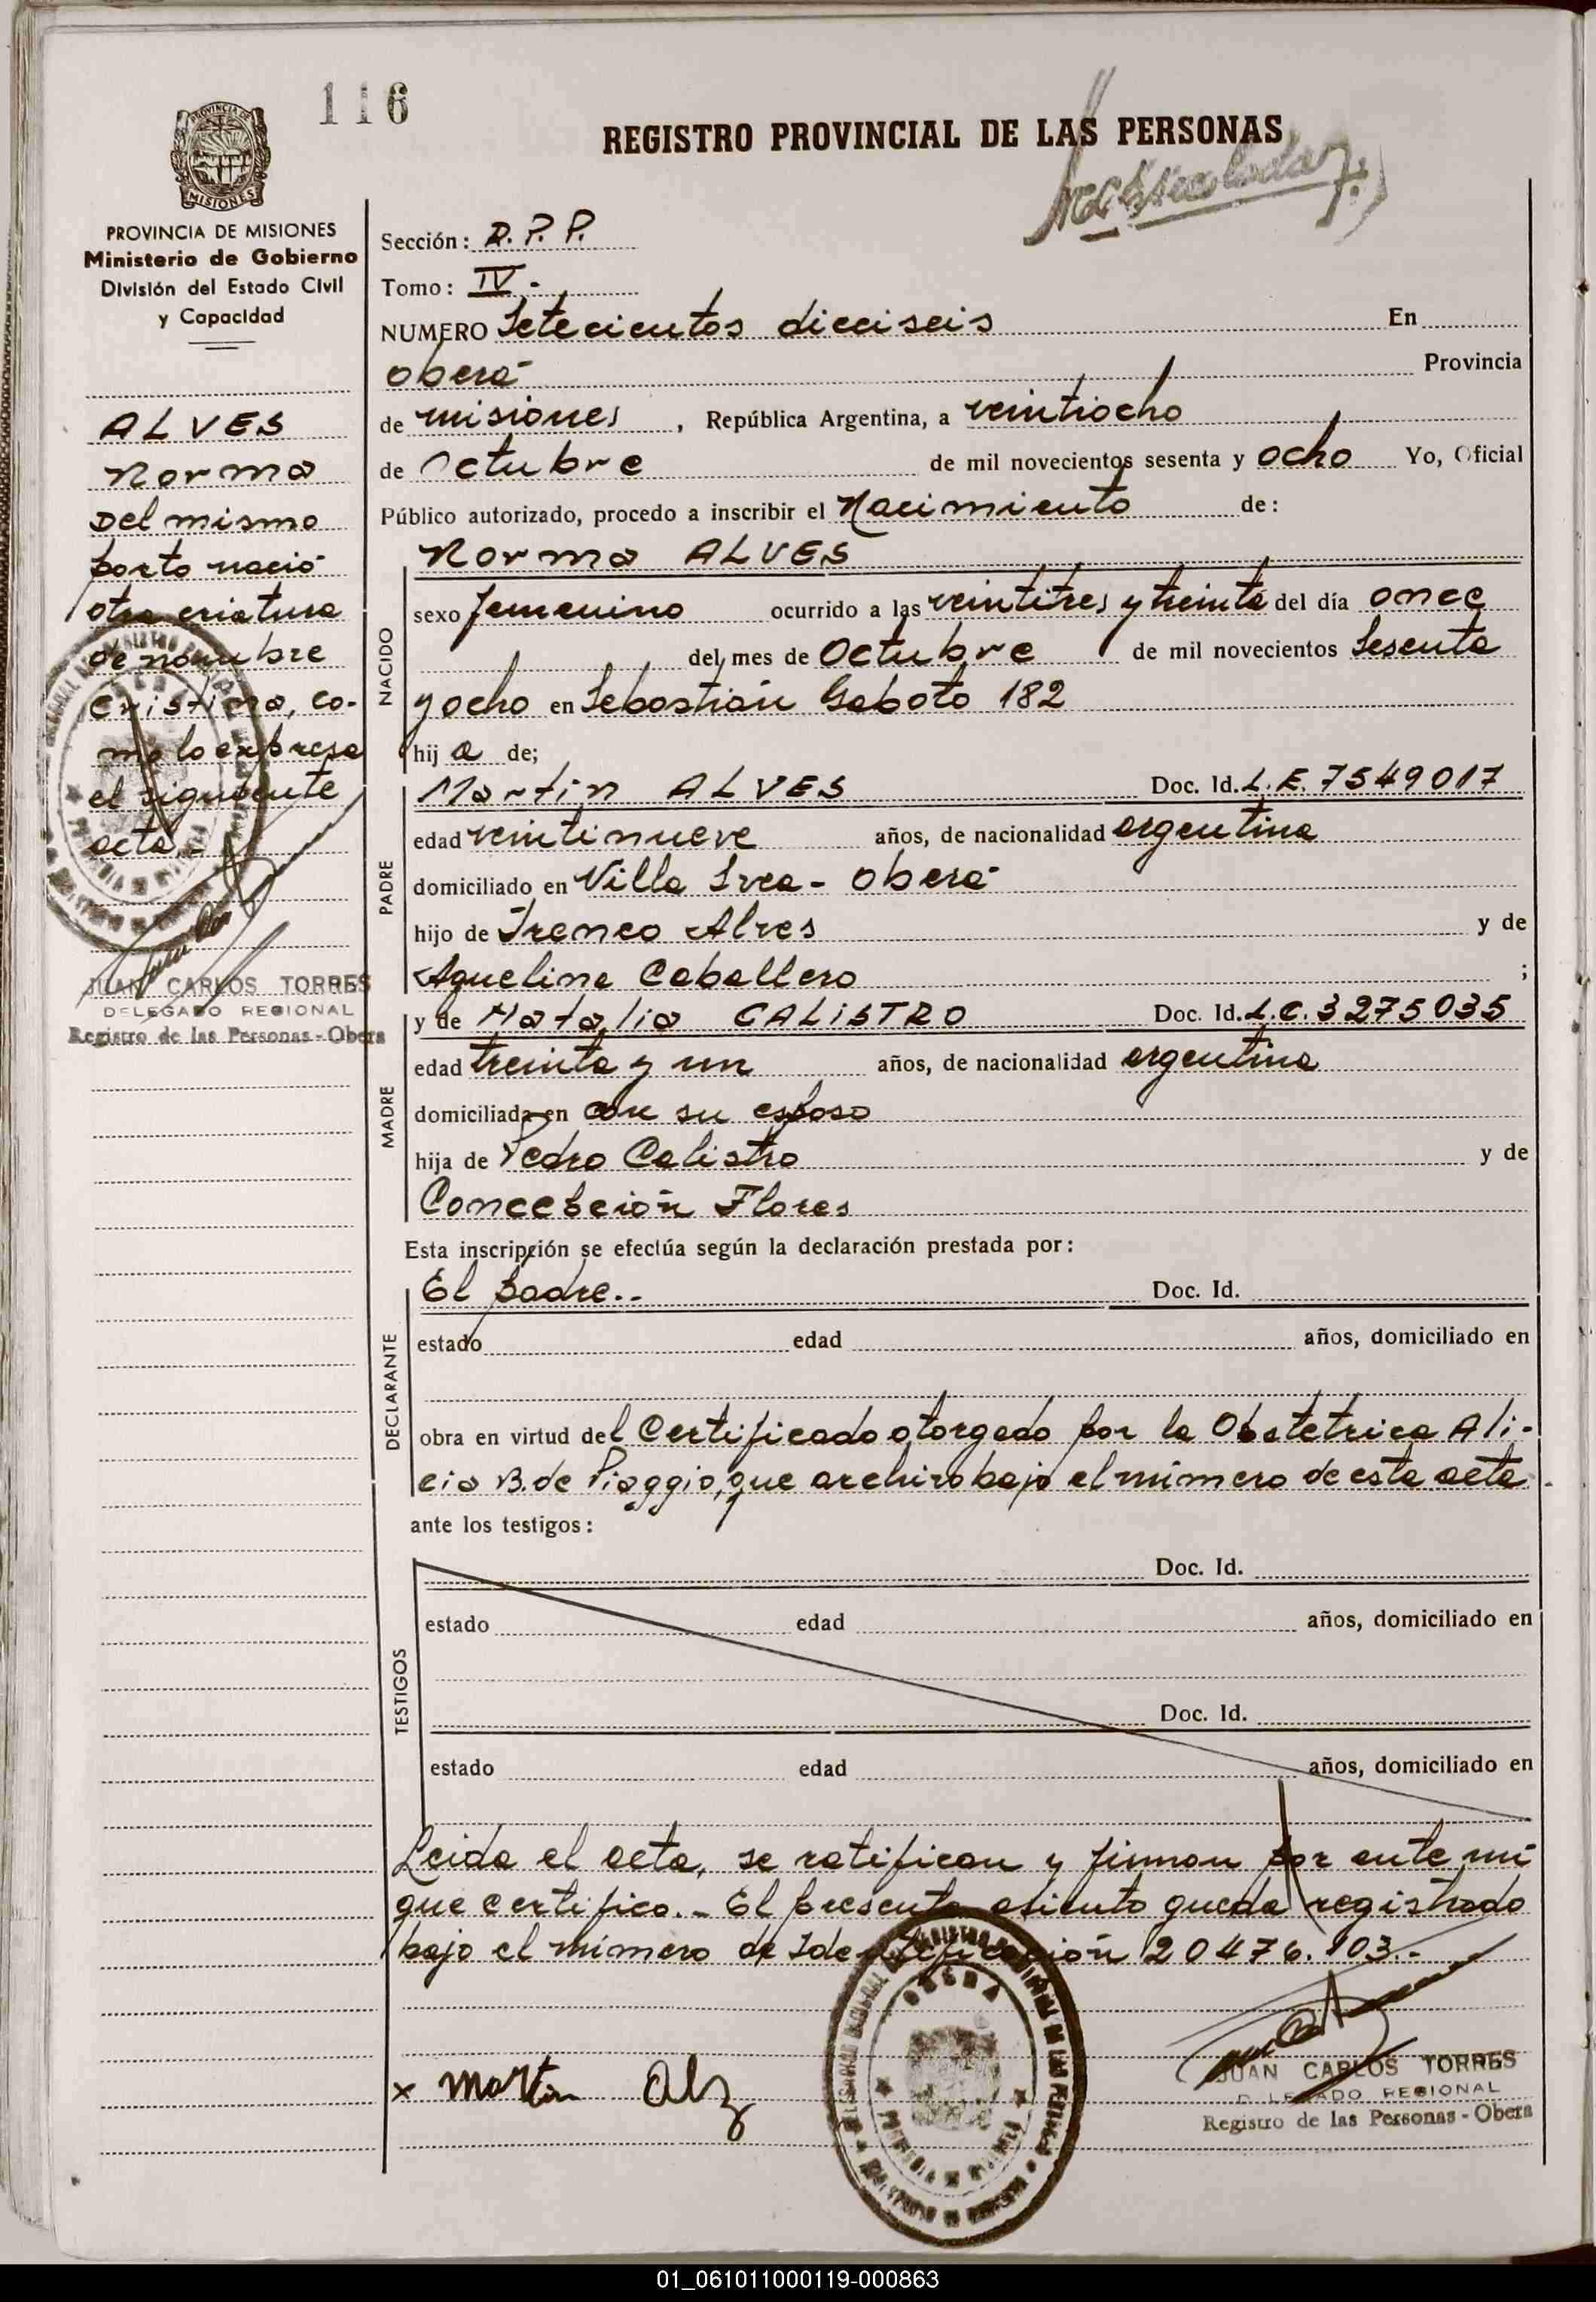 116
REGISTRO PROVINCIAL DE LAS PERSONAS
PROVINCIA DE
MISIONES
PROVINCIA DE MISIONES
Ministerio de Gobierno
División del Estado Civil
y Capacidad
ALVES
Norma
Del mismo
parto nació
otra criatura
de nombre
Cristina, co-
mo lo expresa
el siguiente
acta.-
JUAN CARLOS TORRES
DELEGADO REGIONAL
Registro de las Personas - Obera
Sección: D.P.P.
Tomo: IV -
NUMERO Setecientos dieciseis En
Oberá Provincia
de Misiones, República Argentina, a veintiocho
de Octubre de mil novecientos sesenta y ocho Yo, Oficial
Público autorizado, procedo a inscribir el Nacimiento de:
Norma ALVES
NACIDO
sexo femenino ocurrido a las veintitres y treinta del día once
del mes de Octubre de mil novecientos Sesenta
y ocho en Sebastián Gaboto 182
hij a de;
PADRE
Martin ALVES Doc. Id. L.E. 7549017
edad veintinueve años, de nacionalidad argentina
domiciliado en Villa Svea - Oberá
hijo de Ireneo Alves y de
Aquelina Caballero ;
MADRE
y de Natalia CALISTRO Doc. Id. L.C. 3275035
edad treinta y un años, de nacionalidad argentina
domiciliada en con su esposo
hija de Pedro Calistro y de
Concepción Flores
Esta inscripción se efectúa según la declaración prestada por:
DECLARANTE
El padre.- Doc. Id.
estado edad años, domiciliado en
obra en virtud del Certificado otorgado por la Obstetrica Ali-
cia B. de Piaggio, que archivo bajo el número de esta acta.
ante los testigos:
TESTIGOS
Doc. Id.
estado edad años, domiciliado en
Doc. Id.
estado edad años, domiciliado en
Leida el acta, se ratifican y firman por ante mí
que certifico.- El presente asiento queda registrado
bajo el número de Identificación 20476.103.-
OBERA
x Martin Alz
JUAN CARLOS TORRES
DELEGADO REGIONAL
Registro de las Personas - Obera
01_061011000119-000863